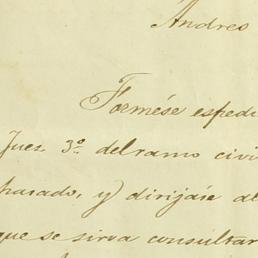 Andres
Formése espedi
Juez 3º del ramo civi
harado, y dirijase al
que se sirva consultar